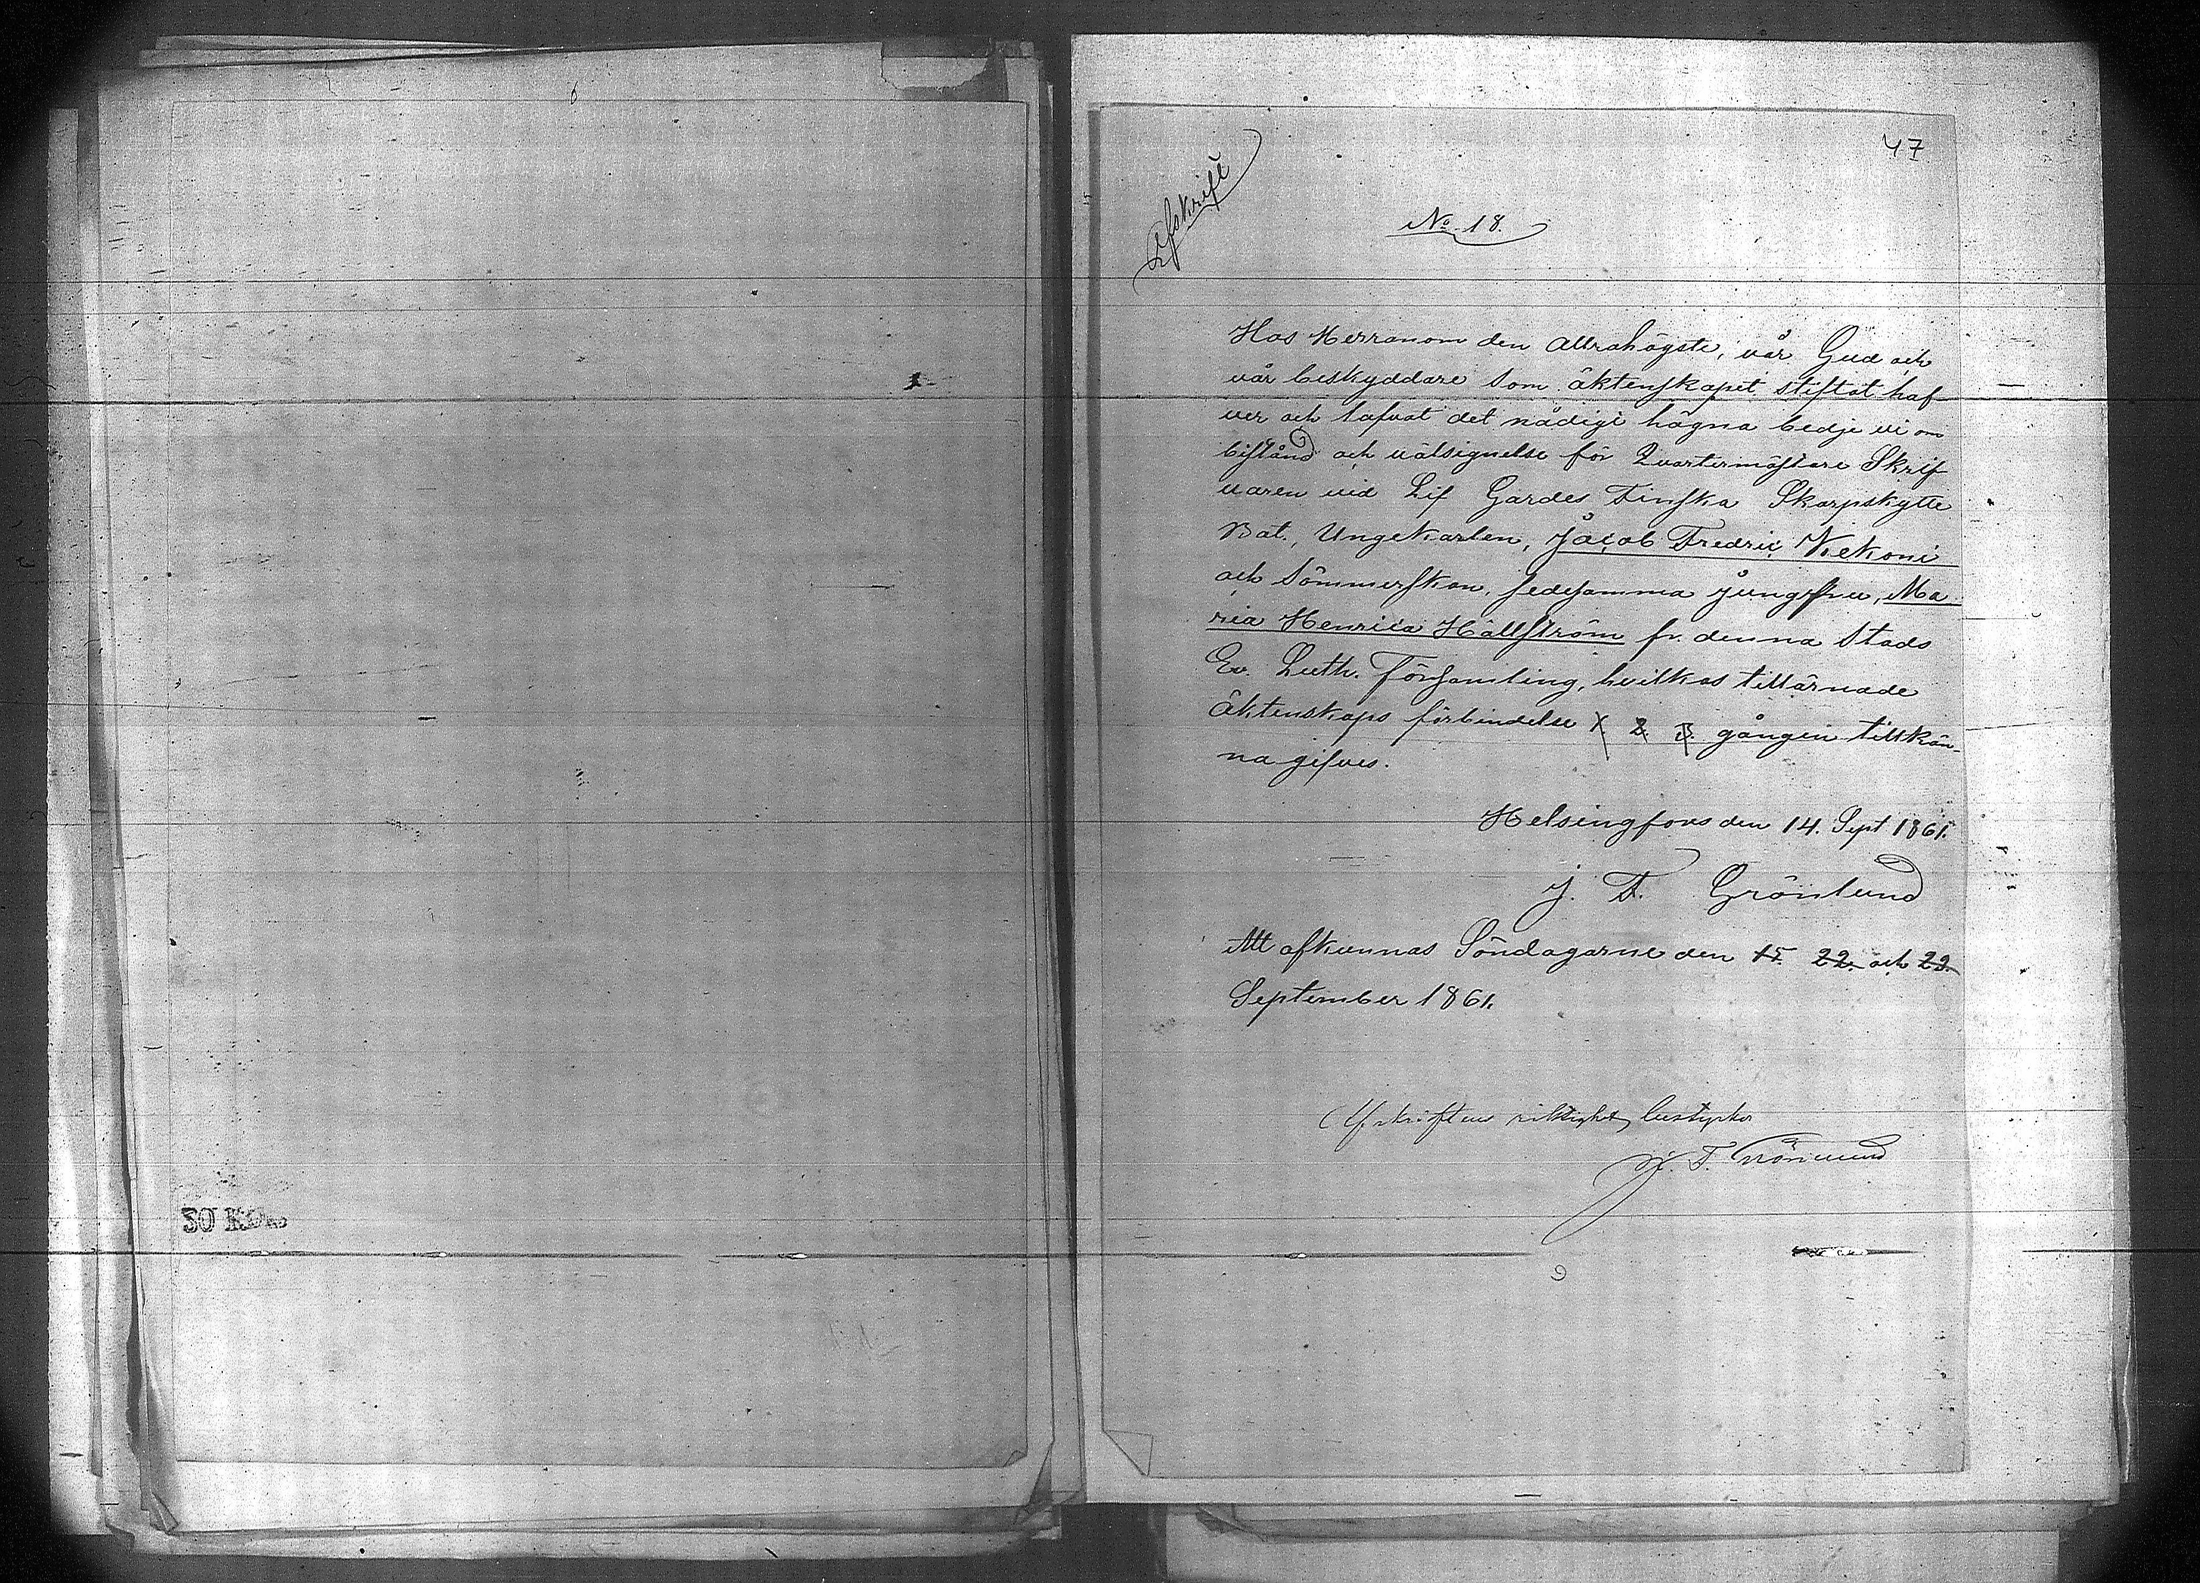 47
Afskrift
No 18.
Hos Herranom den Allrahögste, vår Gud och
vår beskyddare som äktenskapet stiftat haf
ver och lofvat det nådigt hägna bedje vi om
bistånd och välsignelse för Qvartermästare Skrif
varen vid Lif Gardes Finska Skarpskytte
Bat., Ungekarlen, Jacob Fredric Kekoni
och Sömmerskan, sedesamma jungfru, Ma
ria Henrica Hällström fr. denna Stads
Ev. Luth. Församling, hvilkas tillärnade
Äktenskaps förbindelse 1. 2. 3. gången tillkän-
nagifves.
Helsingfors den 14. Sept 1861.
J. F. Grönlund
Att afkunnas Söndagarne den 15. 22. och 29.
September 1861.
Afskriftens riktighet bestyrker
J. F. Grönlund